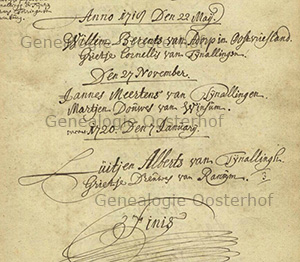 Anno 1719 Den 22 May
Willem Berents van Dorp in Oostvriesland
Grietje Cornellis van Tynallingen
Den 27 November
Jannes Meertens van Tynallingen
Martjen Douwes van Winsum
Anno 1720. Den 7 January
Luitjen Alberts van Tynallingh
Grietje Drewes van
Finis
Genealogie Oosterhof
Genealogie Oosterhof
Genealogie Oosterhof